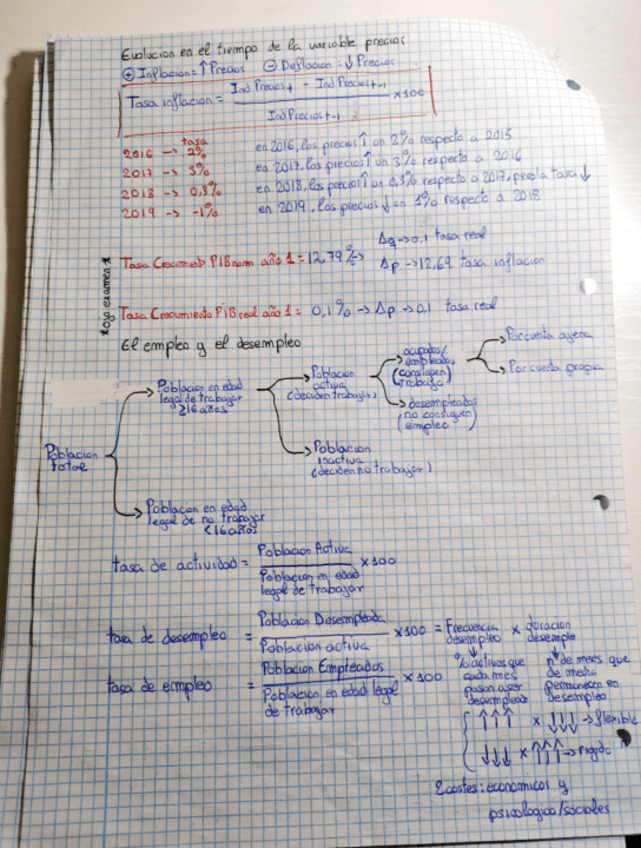 Evolucion en el tiempo de la variable precios
⊕ Inflacion = ↑ Precios ⊖ Deflacion = ↓ Precios
Tasa inflacion = (Ind Precios t - Ind Precios t-1) / (Ind Precios t-1) x100
tasa
2016 -> 2% en 2016, los precios ↑ un 2% respecto a 2015
2017 -> 3% en 2017, los precios ↑ un 3% respecto a 2016
2018 -> 0,3% en 2018, los precios ↑ un 0,3% respecto a 2017, pero la tasa ↓
2019 -> -1% en 2019, los precios ↓ un 1% respecto a 2018
*ojo examen*
Δq -> 0,1 tasa real
Tasa Crecimiento PIB nom año 1 = 12,79% -> Δp -> 12,69 tasa inflacion
Tasa Crecimiento PIB real año 1 = 0,1% -> Δp -> 0,1 tasa real
El empleo y el desempleo
Poblacion total
Poblacion en edad
legal de trabajar
≥16 años
Poblacion
activa
(deciden trabajar)
ocupados/
empleados
(consiguen
trabajo)
Por cuenta ajena
Por cuenta propia
desempleados
(no consiguen
empleo)
Poblacion
inactiva
(deciden no trabajar)
Poblacion en edad
legal de no trabajar
<16 años
tasa de actividad = Poblacion Activa / Poblacion en edad legal de trabajar x100
tasa de desempleo = Poblacion Desempleada / Poblacion activa x100 = Frecuencia desempleo x duracion desempleo
↓ % activos que
cada mes
pasan a ser
desempleado
↓ nº de meses que
de media
permanece en
desempleo
tasa de empleo = Poblacion Empleados / Poblacion en edad legal de trabajar x100
↑↑↑ x ↓↓↓ -> flexible
↓↓↓ x ↑↑↑ -> rigido
2 costes: economicos y
psicologico/sociales